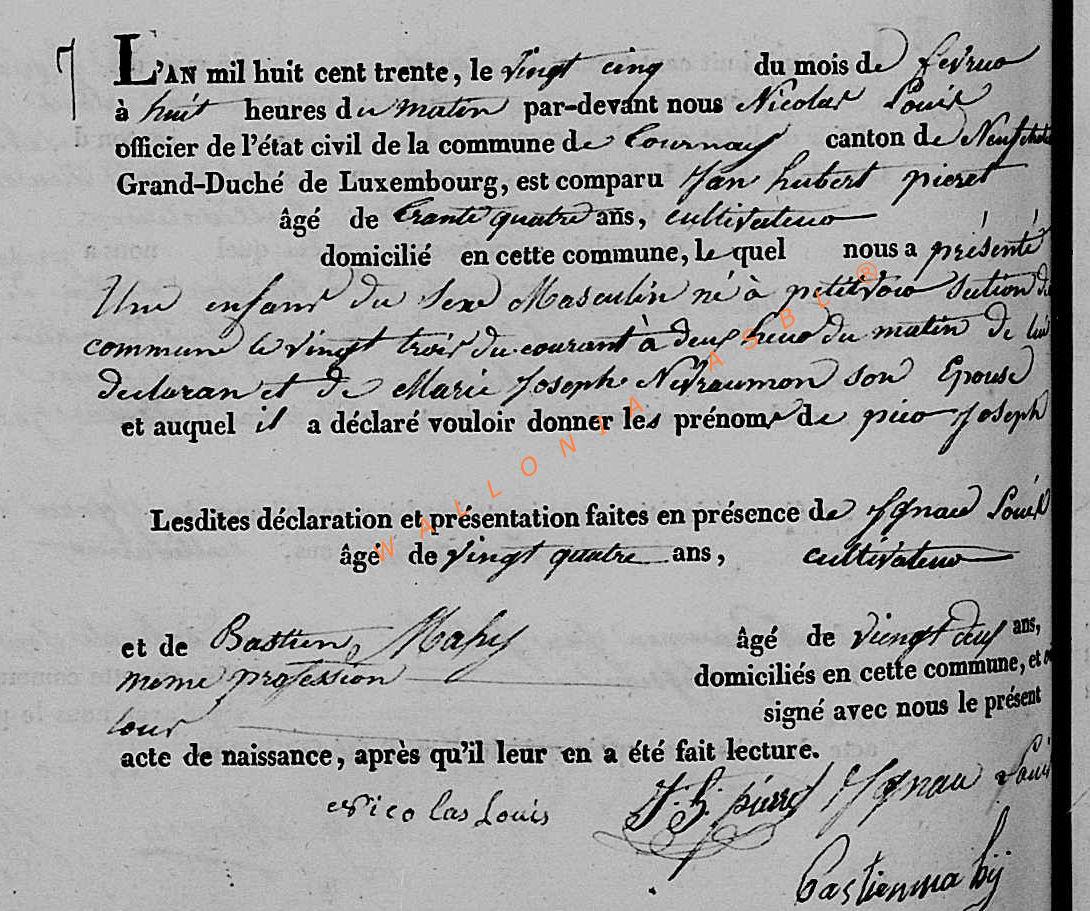 7
L'AN mil huit cent trente, le vingt cinq du mois de fevrier
à huit heures du matin par-devant nous Nicolas Louis
officier de l'état civil de la commune de Tournay canton de Neufchate
Grand-Duché de Luxembourg, est comparu Jean hubert pieret
âgé de trante quatre ans, cultivateur
domicilié en cette commune, le quel nous a présenté
Une enfant du Sexe Masculin né à petitvoir section de
commune le vingt trois du courant à deux heur du matin de lui
declaran et de Marie Joseph Nevraumon son Epouse
et auquel il a déclaré vouloir donner les prénoms de pier Joseph
Lesdites déclaration et présentation faites en présence de Ignace Louis
âgé de vingt quatre ans, cultivateur
et de Bastien Mahy âgé de viengt deux ans,
meme profession domiciliés en cette commune, et
tous signé avec nous le présent
acte de naissance, après qu'il leur en a été fait lecture.
Nicolas Louis J. h. pierret Ignace Louis
Bastien mahy
WALLONIA ASBL ®